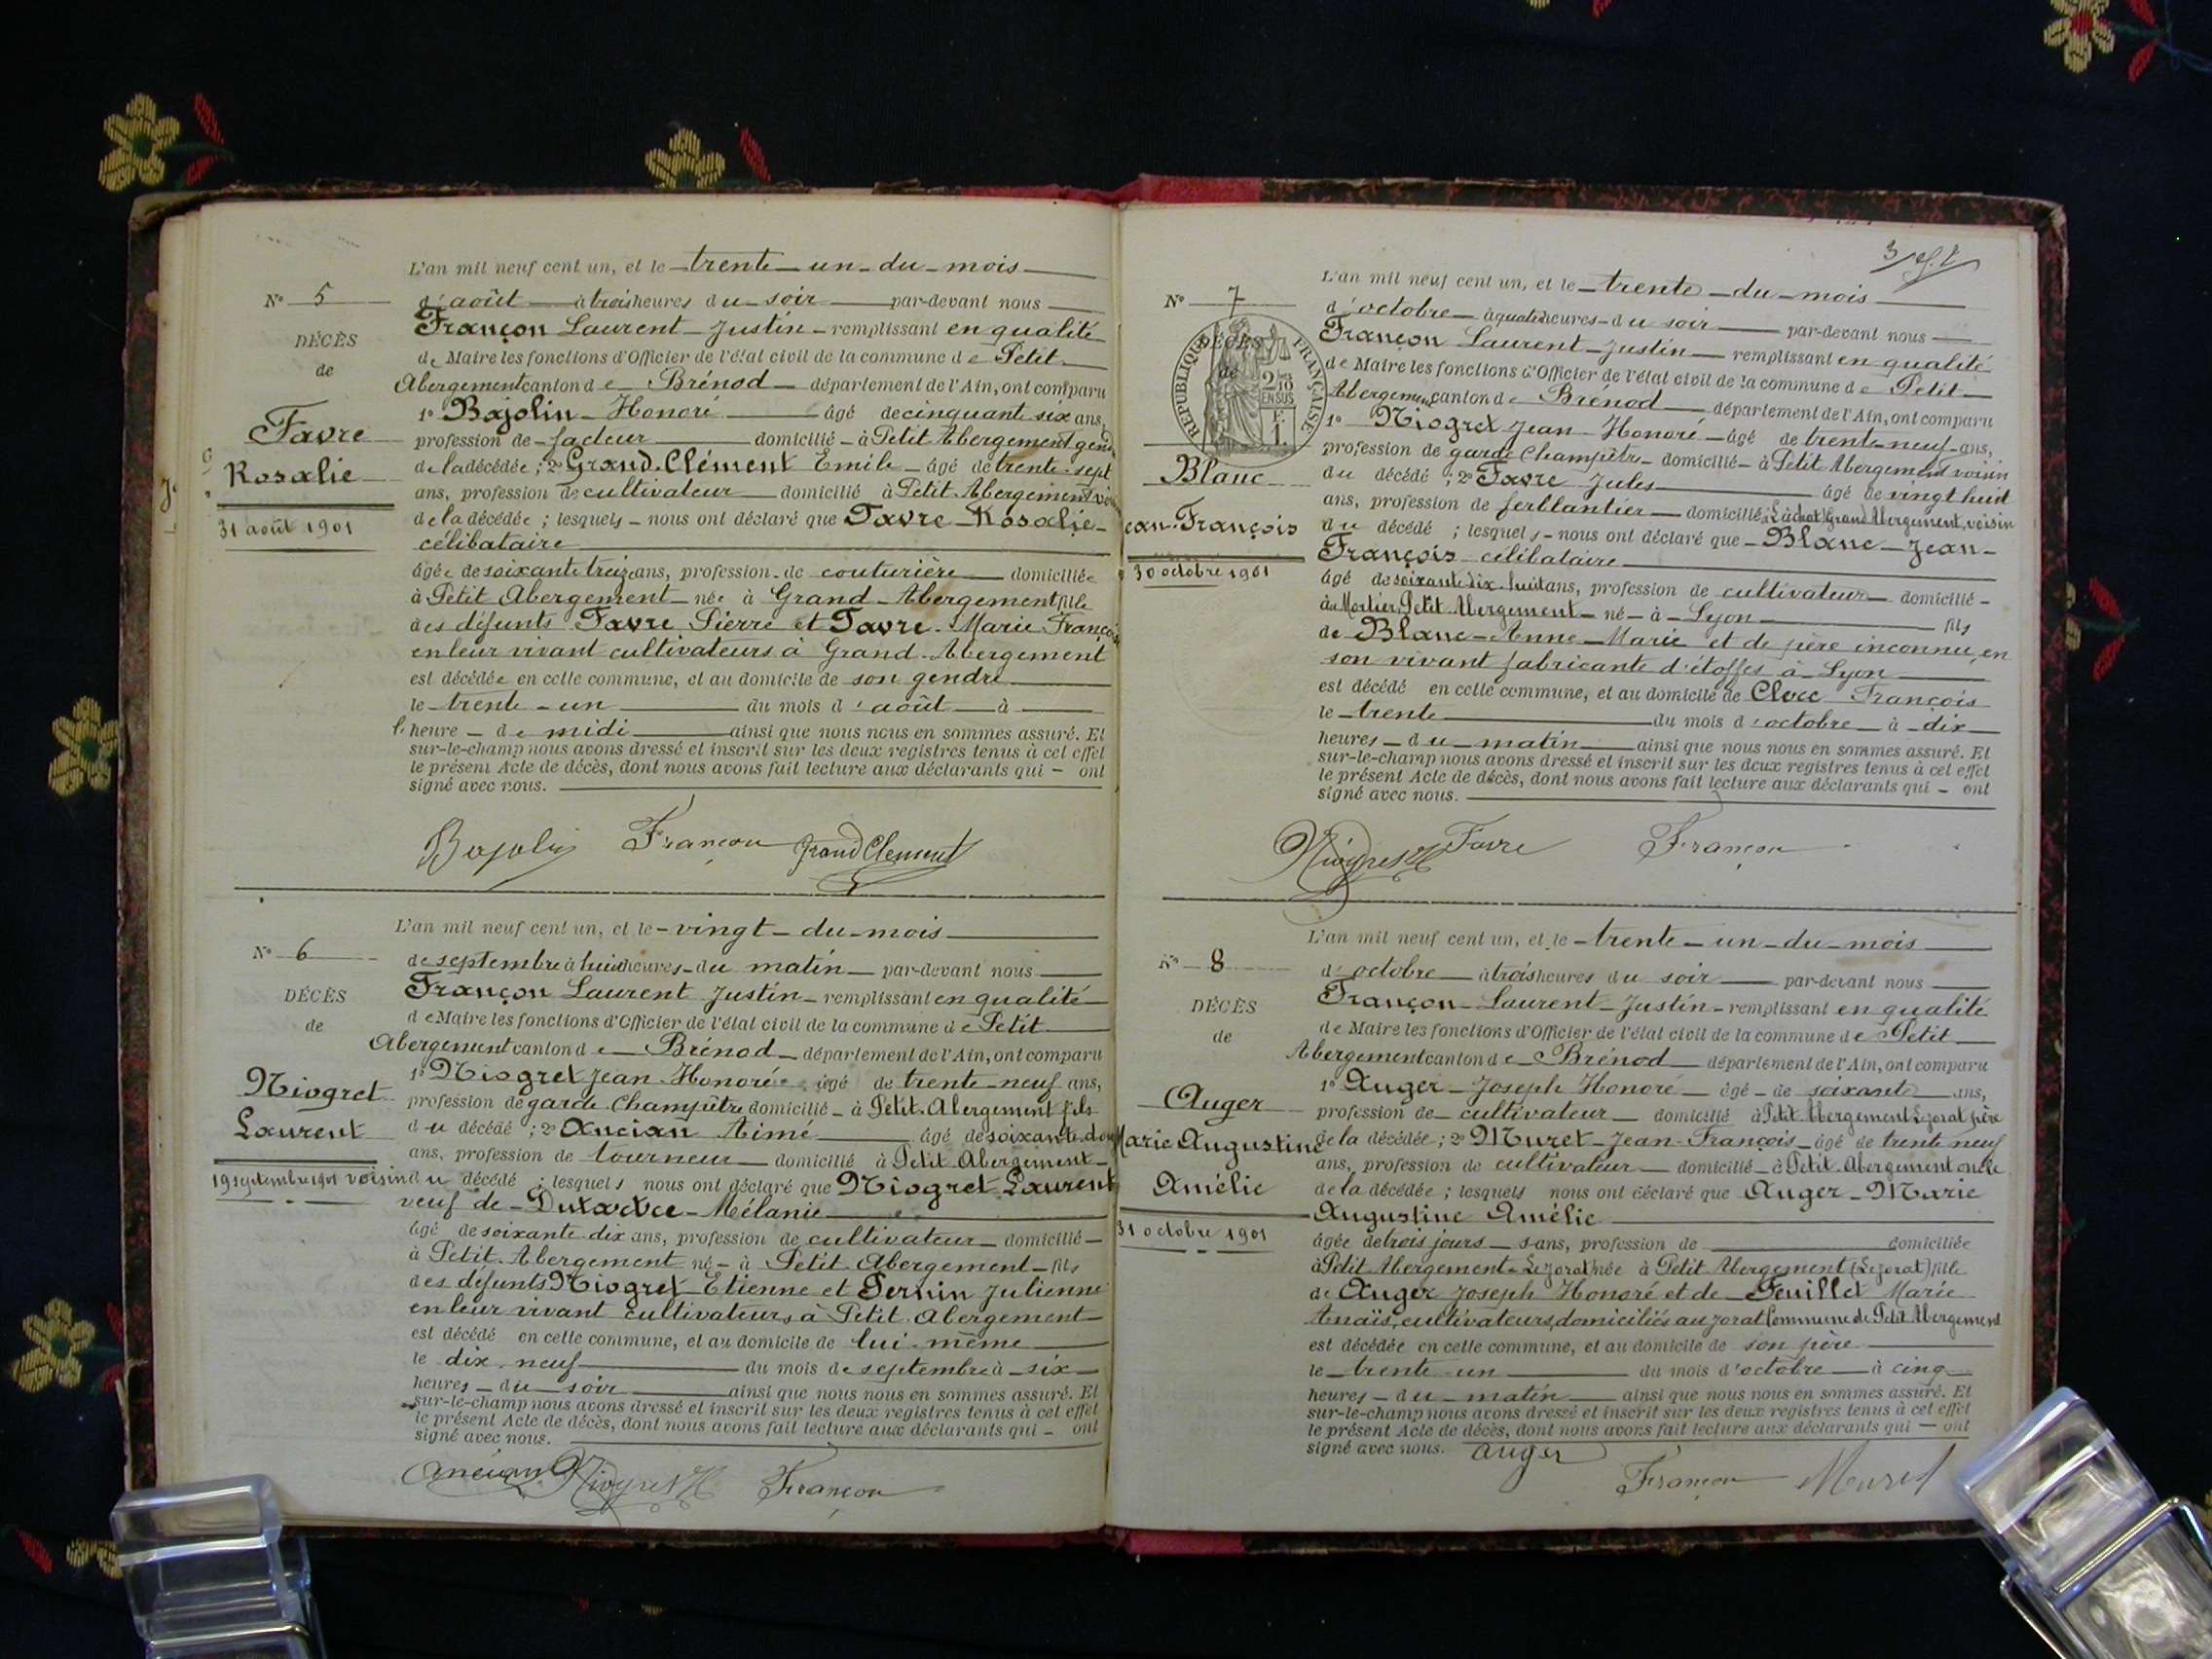 L'an mil neuf cent un, et le trente un du mois
N° 5
d'août à trois heures du soir par-devant nous
Françon Laurent Justin remplissant en qualité
DÉCÈS
de Maire les fonctions d'Officier de l'état civil de la commune de Petit
de
Abergement canton de Brénod département de l'Ain, ont comparu
1° Bajolin Honoré âgé de cinquante six ans,
Favre
profession de facteur domicilié à Petit Abergement gendre
Rosalie
de la décédée ; 2° Grand-Clément Emile âgé de trente-sept
ans, profession de cultivateur domicilié à Petit Abergement voisin
31 août 1901
de la décédée ; lesquels nous ont déclaré que Favre Rosalie
célibataire
âgée de soixante treize ans, profession de couturière domiciliée
à Petit Abergement née à Grand-Abergement fille
des défunts Favre Pierre et Favre Marie Françoise
en leur vivant cultivateurs à Grand-Abergement
est décédée en cette commune, et au domicile de son gendre
le trente-un du mois d'août à
l'heure de midi ainsi que nous nous en sommes assuré. Et
sur-le-champ nous avons dressé et inscrit sur les deux registres tenus à cet effet
le présent Acte de décès, dont nous avons fait lecture aux déclarants qui ont
signé avec nous.
Bajolin Françon Grand Clement
L'an mil neuf cent un, et le vingt du mois
N° 6
de septembre à huit heures du matin par-devant nous
Françon Laurent Justin remplissant en qualité
DÉCÈS
de Maire les fonctions d'Officier de l'état civil de la commune de Petit
de
Abergement canton de Brénod département de l'Ain, ont comparu
1° Niogret Jean Honoré âgé de trente-neuf ans,
Niogret
profession de garde Champêtre domicilié à Petit-Abergement fils
Laurent
du décédé ; 2° Ancian Aimé âgé de soixante-deux
ans, profession de tourneur domicilié à Petit Abergement
19 septembre 1901
voisin du décédé ; lesquels nous ont déclaré que Niogret Laurent
veuf de Dutartre Mélanie
âgé de soixante-dix ans, profession de cultivateur domicilié
à Petit-Abergement né à Petit Abergement fils
des défunts Niogret Etienne et Pernin Julienne
en leur vivant cultivateurs à Petit-Abergement
est décédé en cette commune, et au domicile de lui-même
le dix-neuf du mois de septembre à six
heures du soir ainsi que nous nous en sommes assuré. Et
sur-le-champ nous avons dressé et inscrit sur les deux registres tenus à cet effet
le présent Acte de décès, dont nous avons fait lecture aux déclarants qui ont
signé avec nous.
Ancian Niogret H Françon
L'an mil neuf cent un, et le trente du mois
N° 7
d'octobre à quatre heures du soir par-devant nous
Françon Laurent Justin remplissant en qualité
DÉCÈS
de
RÉPUBLIQUE FRANÇAISE
2/10 EN SUS
F. 1.
de Maire les fonctions d'Officier de l'état civil de la commune de Petit
Abergement canton de Brénod département de l'Ain, ont comparu
1° Niogret Jean Honoré âgé de trente-neuf ans,
profession de garde Champêtre domicilié à Petit Abergement voisin
Blanc
du décédé ; 2° Favre Jules âgé de vingt huit
ans, profession de ferblantier domicilié à Lachat Grand Abergement, voisin
ean-François
du décédé ; lesquels nous ont déclaré que Blanc Jean-
30 octobre 1901
François célibataire
âgé de soixante dix-huit ans, profession de cultivateur domicilié
au Mortier, Petit-Abergement né à Lyon fils
de Blanc Anne Marie et de père inconnu, en
son vivant fabricante d'étoffes à Lyon
est décédé en cette commune, et au domicile de François
le trente du mois d'octobre à dix
heures du matin ainsi que nous nous en sommes assuré. Et
sur-le-champ nous avons dressé et inscrit sur les deux registres tenus à cet effet
le présent Acte de décès, dont nous avons fait lecture aux déclarants qui ont
signé avec nous.
Niogret H Favre Françon
L'an mil neuf cent un, et le trente-un du mois
N° 8
d'octobre à trois heures du soir par-devant nous
Françon Laurent Justin remplissant en qualité
DÉCÈS
de Maire les fonctions d'Officier de l'état civil de la commune de Petit
de
Abergement canton de Brénod département de l'Ain, ont comparu
1° Auger Joseph Honoré âgé de soixante ans,
Auger
profession de cultivateur domicilié à Petit Abergement Lejorat père
Marie Augustine
de la décédée ; 2° Muret Jean-François âgé de trente neuf
ans, profession de cultivateur domicilié à Petit-Abergement oncle
Amélie
de la décédée ; lesquels nous ont déclaré que Auger Marie
Augustine Amélie
31 octobre 1901
âgée de trois jours s ans, profession de domiciliée
à Petit Abergement Le jorat née à Petit Abergement (Le jorat) fille
de Auger Joseph Honoré et de Feuillet Marie
Anaïs, cultivateurs, domiciliés au jorat Commune de Petit Abergement
est décédée en cette commune, et au domicile de son père
le trente un du mois d'octobre à cinq
heures du matin ainsi que nous nous en sommes assuré. Et
sur-le-champ nous avons dressé et inscrit sur les deux registres tenus à cet effet
le présent Acte de décès, dont nous avons fait lecture aux déclarants qui ont
signé avec nous. Auger
Françon Muret